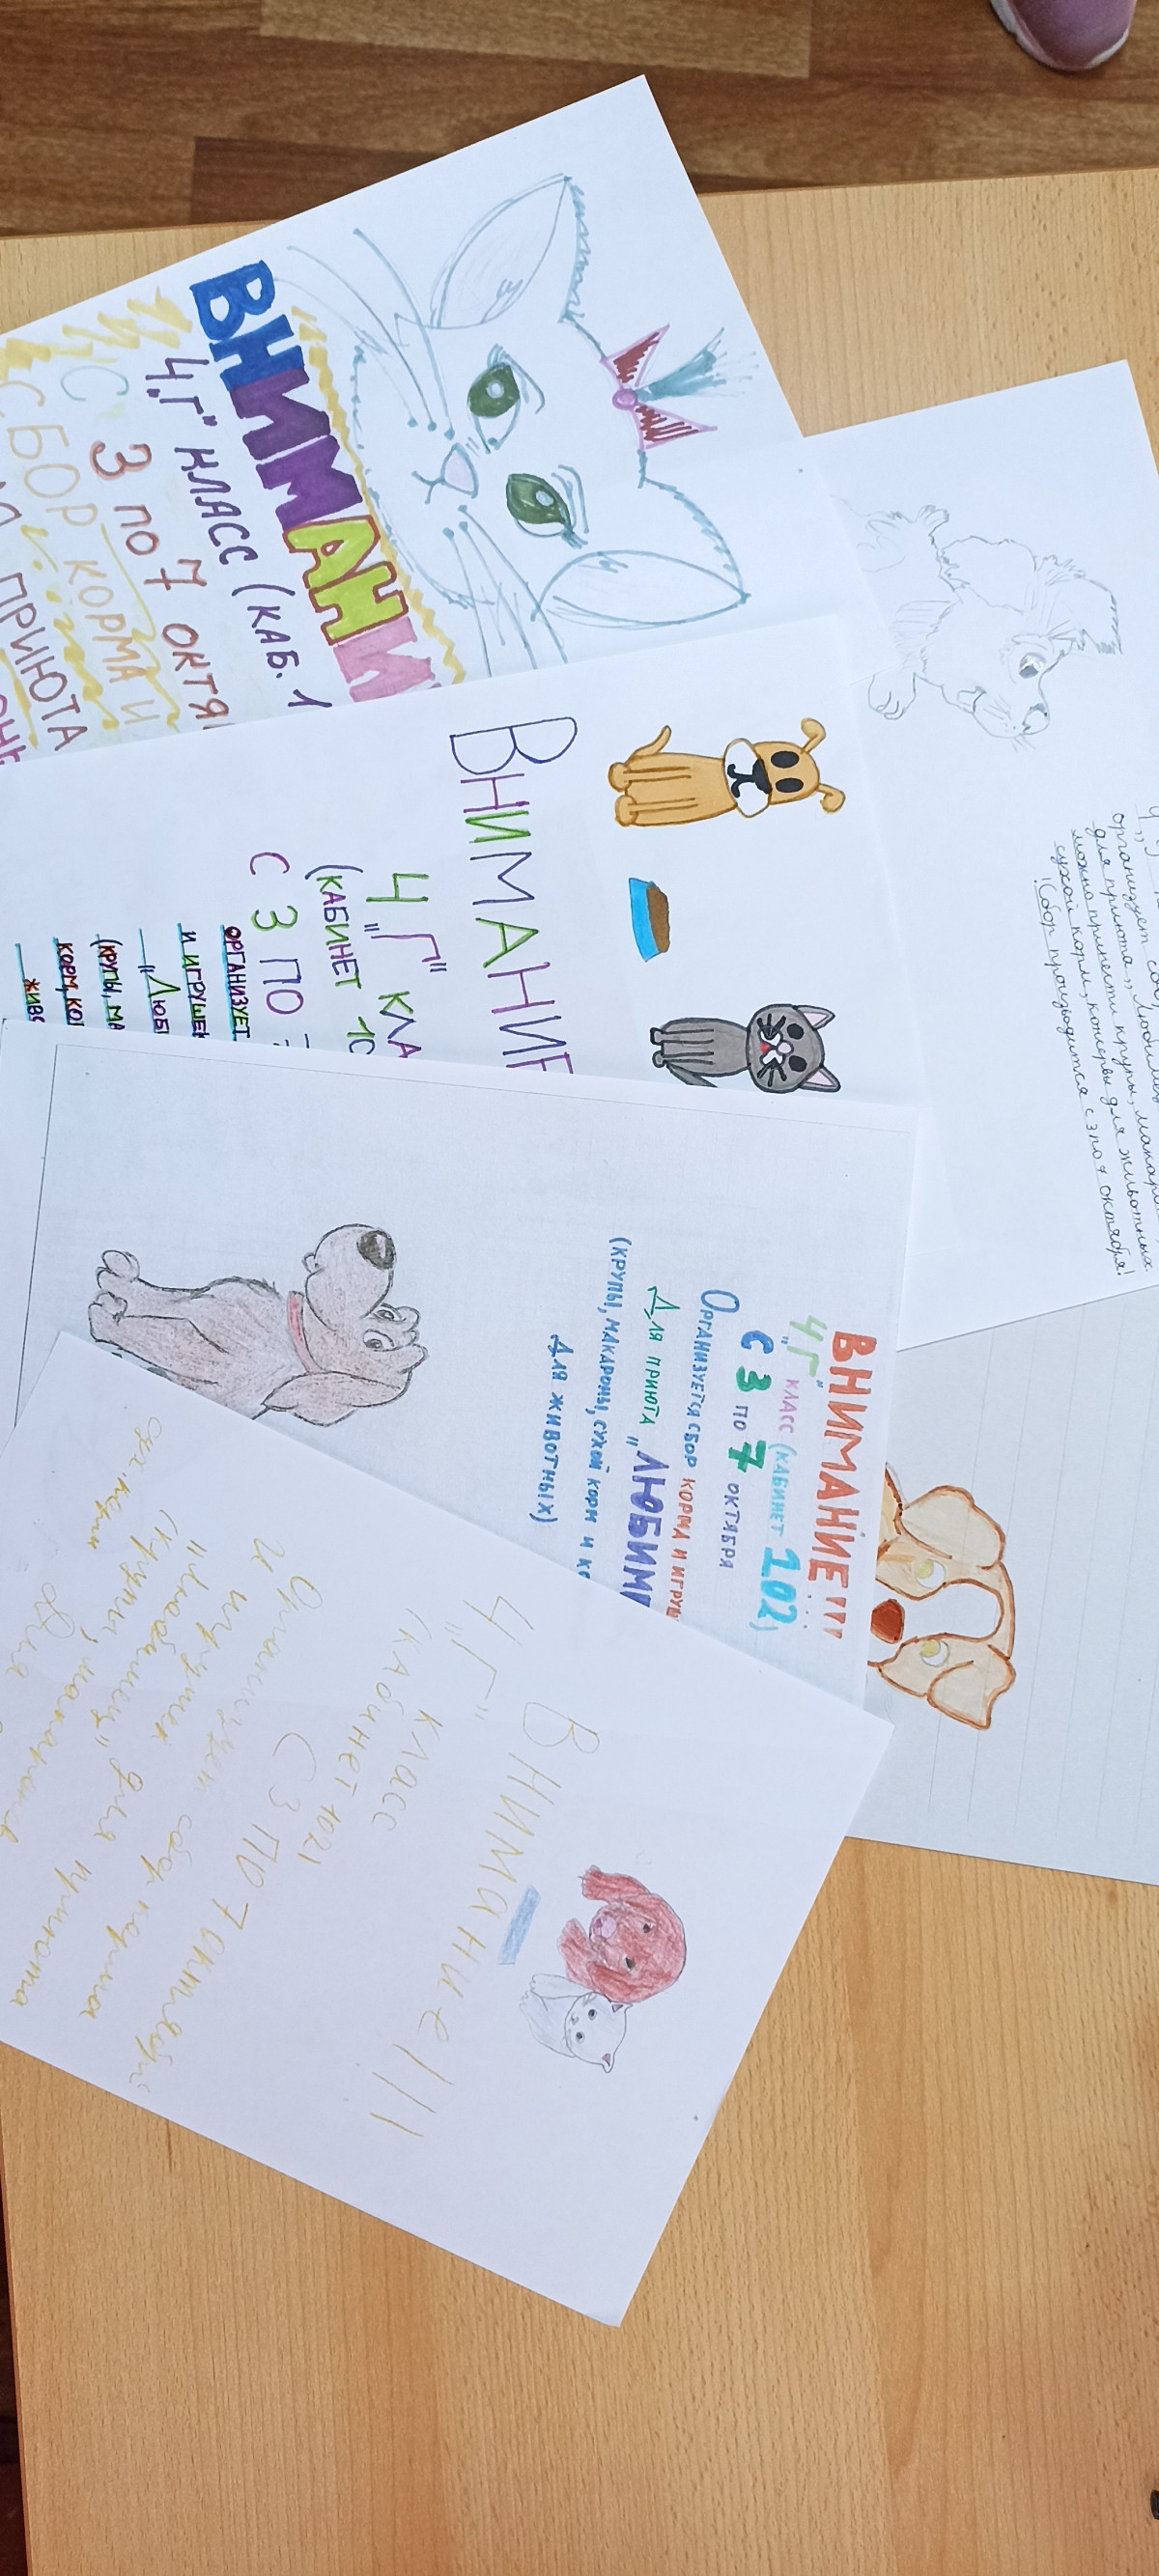 ВНИМАНИ
4 „Г" КЛАСС (КАБ. 1
С 3 ПО 7 ОКТЯ
СБОР КОРМА И
ПРИЮТА
ВНИМАНИЕ
4 „Г" КЛА
(КАБИНЕТ 10
С 3 ПО
ОРГАНИЗУЕТ
И ИГРУШЕ
„ЛЮБ
(КРУПЫ, МА
КОРМ, КО
ЖИВ
организует
для приюта „Любимец
можно принести крупы, макаро
сухой корм, консервы для животных.
!Сбор производится с 3 по 7 октября!
ВНИМАНИЕ!!!
4„Г" КЛАСС (КАБИНЕТ 102)
С 3 ПО 7 ОКТЯБРЯ
ОРГАНИЗУЕТСЯ СБОР КОРМА И ИГРУШ
ДЛЯ ПРИЮТА „ЛЮБИМ
(КРУПЫ, МАКАРОНЫ, СУХОЙ КОРМ И КО
ДЛЯ ЖИВОТНЫХ)
Внимание!!!
4 „Г" класс
(кабинет 102)
С 3 ПО 7 октября
Организует сбор корма
и игрушек для приюта
„Любимец"
(крупы, макароны
сух корм
Для